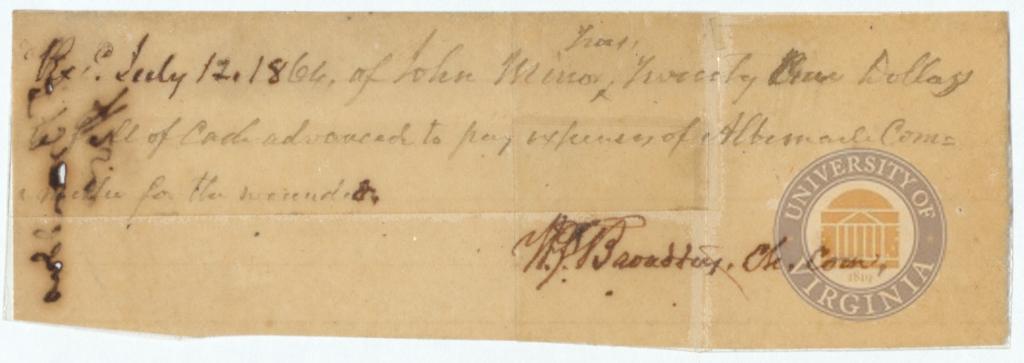 Trea,
Rec. July 12. 1864, of John Minor, Twenty Dollars
full of Cash advanced to pay expenses of Albemarle Com=
mittee for the wounded.
Broaddus. Ch. Com,
UNIVERSITY OF VIRGINIA
1819